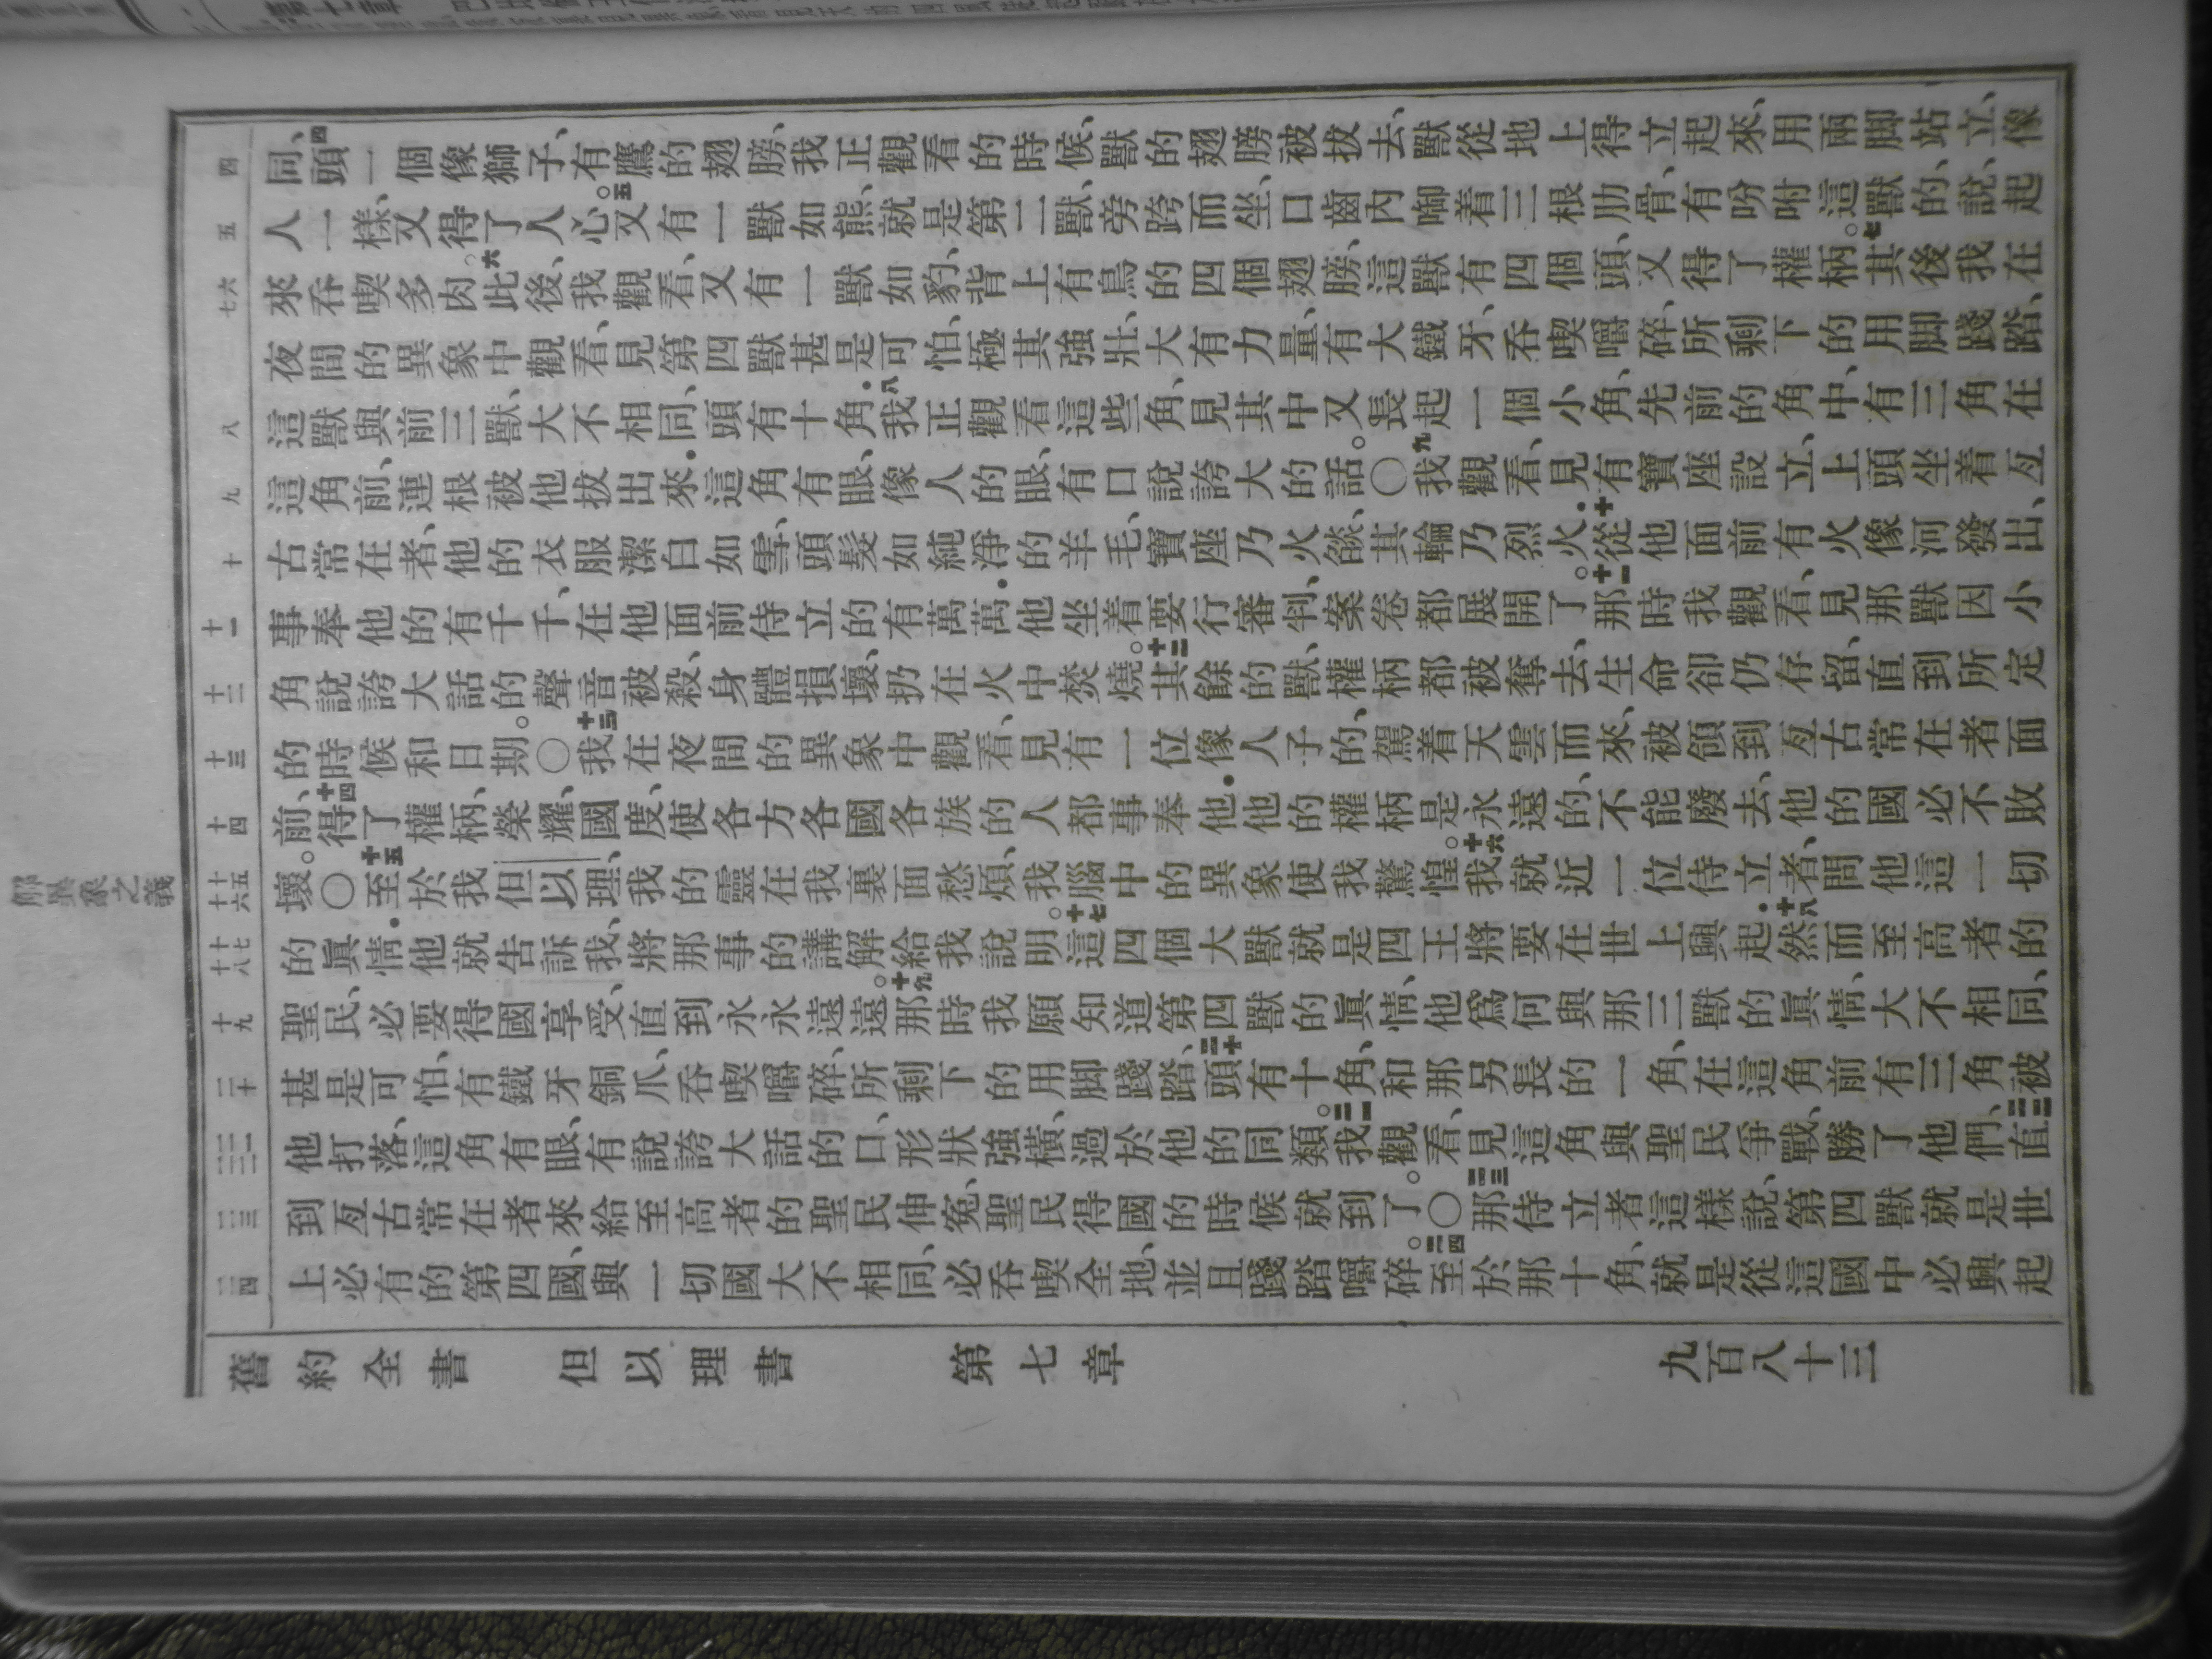 同、四頭一個像獅子、有鷹的翅膀、我正觀看的時候、獸的翅膀被拔去、獸從地上得立起來、用兩脚站立、像
人一樣、又得了人心。五又有一獸如熊、就是第二獸、旁跨而坐、口齒內啣着三根肋骨、有吩咐這獸的、說、起
來吞喫多肉。六此後、我觀看、又有一獸如豹、背上有鳥的四個翅膀、這獸有四個頭、又得了權柄。七其後我在
夜間的異象中觀看、見第四獸甚是可怕、極其強壯、大有力量、有大鐵牙、吞喫嚼碎、所剩下的用脚踐踏、
這獸與前三獸、大不相同、頭有十角．八我正觀看這些角、見其中又長起一個小角、先前的角中、有三角在
這角前、連根被他拔出來．這角有眼、像人的眼、有口說誇大的話。〇九我觀看、見有寶座設立、上頭坐着亙
古常在者、他的衣服潔白如雪、頭髮如純淨的羊毛、寶座乃火燄、其輪乃烈火．十從他面前有火像河發出、
事奉他的有千千、在他面前侍立的有萬萬．他坐着要行審判、案卷都展開了。十一那時我觀看、見那獸因小
角說誇大話的聲音被殺、身體損壞、扔在火中焚燒。十二其餘的獸、權柄都被奪去、生命卻仍存留、直到所定
的時候和日期。〇十三我在夜間的異象中觀看、見有一位像人子的、駕着天雲而來、被領到亙古常在者面
前、十四得了權柄、榮耀、國度、使各方各國各族的人都事奉他．他的權柄是永遠的、不能廢去、他的國必不敗
壞。〇十五至於我但以理、我的靈在我裏面愁煩、我腦中的異象使我驚惶。十六我就近一位侍立者、問他這一切
的眞情．他就告訴我、將那事的講解給我說明。十七這四個大獸就是四王將要在世上興起．十八然而至高者的
聖民、必要得國享受、直到永永遠遠。十九那時我願知道第四獸的眞情、他爲何與那三獸的眞情、大不相同、
甚是可怕、有鐵牙銅爪、吞喫嚼碎、所剩下的用脚踐踏、二十頭有十角、和那另長的一角、在這角前有三角被
他打落、這角有眼、有說誇大話的口、形狀強橫、過於他的同類。二一我觀看、見這角與聖民爭戰、勝了他們、二二直
到亙古常在者來給至高者的聖民伸冤、聖民得國的時候就到了。〇二三那侍立者這樣說、第四獸就是世
上必有的第四國、與一切國大不相同、必吞喫全地、並且踐踏嚼碎。二四至於那十角、就是從這國中必興起
舊約全書 但以理書 第七章 九百八十三
四
五
六
七
八
九
十
十一
十二
十三
十四
十五
十六
十七
十八
十九
二十
二一
二二
二三
二四
解異象之義